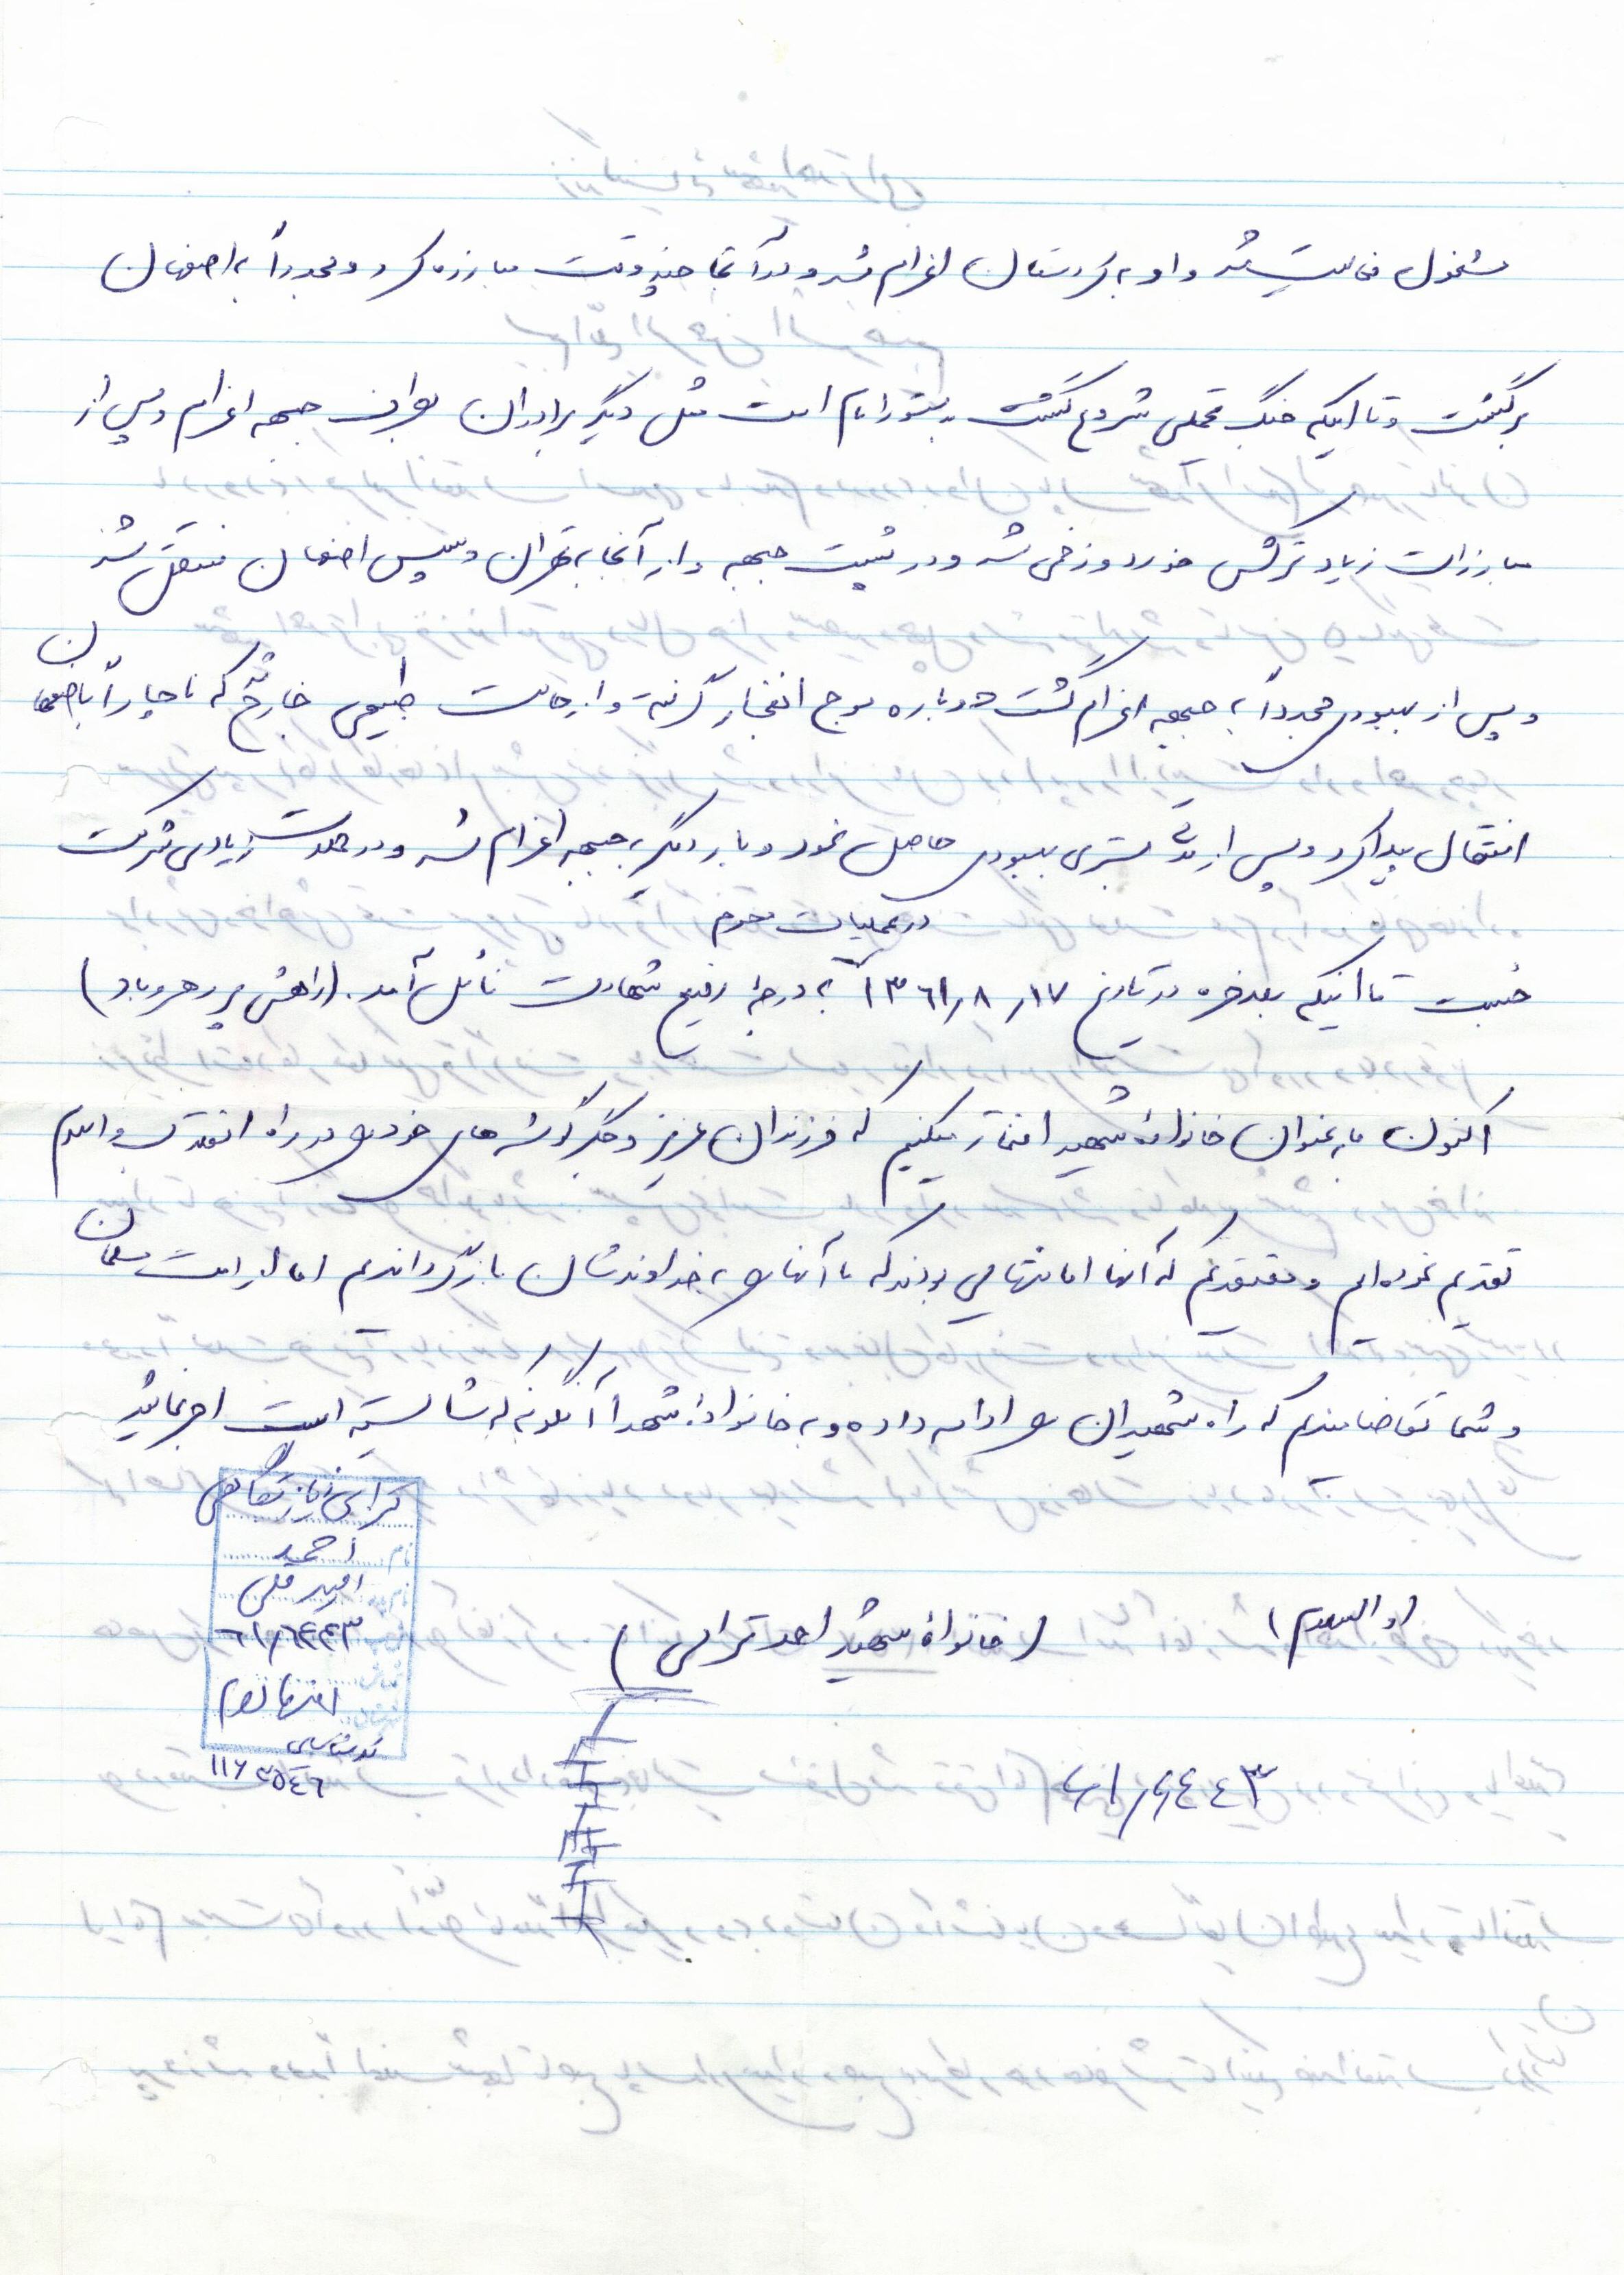 مشغول فعالیت شد و او به کردستان اعزام شد و در آنجا چند وقت مبارزه کرد و مجدداً به اصفهان
برگشت و تا اینکه جنگ تحمیلی شروع گشت بدستور امام امت مثل دیگر برادران بطرف جبهه اعزام و پس از
مبارزات زیاد ترکش خورد و زخمی شد و در پشت جبهه و از آنجا به تهران و سپس اصفهان منتقل شد
و پس از بهبودی مجدداً به جبهه اعزام گشت دوباره موج انفجار گرفته و از حالت طبیعی خارج شد که ناچاراً باصفهان
انتقال پیدا کرد و پس از مدتی بستری بهبودی حاصل نمود و بار دیگر به جبهه اعزام شد و در حملات زیادی شرکت
در عملیات محرم
جست تا اینکه بلاخره در تاریخ ۱۳۶۱/۸/۱۷ به درجهٔ رفیع شهادت نائل آمد. (راهش پر رهرو باد)
اکنون ما به عنوان خانوادهٔ شهید افتخار میکنیم که فرزندان عزیز و جگرگوشه های خود را در راه انقلاب و اسلام
تقدیم نموده ایم و معتقدیم که آنها امانتهایی بودند که ما آنها را به خداوندشان بازگرداندیم اما از امت مسلمان
و شما تقاضا مندیم که راه شهیدان را ادامه داده و به خانوادهٔ شهدا آنگونه که شایسته است اجر نمائید
والسلام
(خانوادهٔ شهید احمد ترابی)
نام احمد
امیرقلی
۶۱/۶۴۴۳
کدشناسایی
۱۱۶۲۵۴۶
۶۱/۶۴۴۳